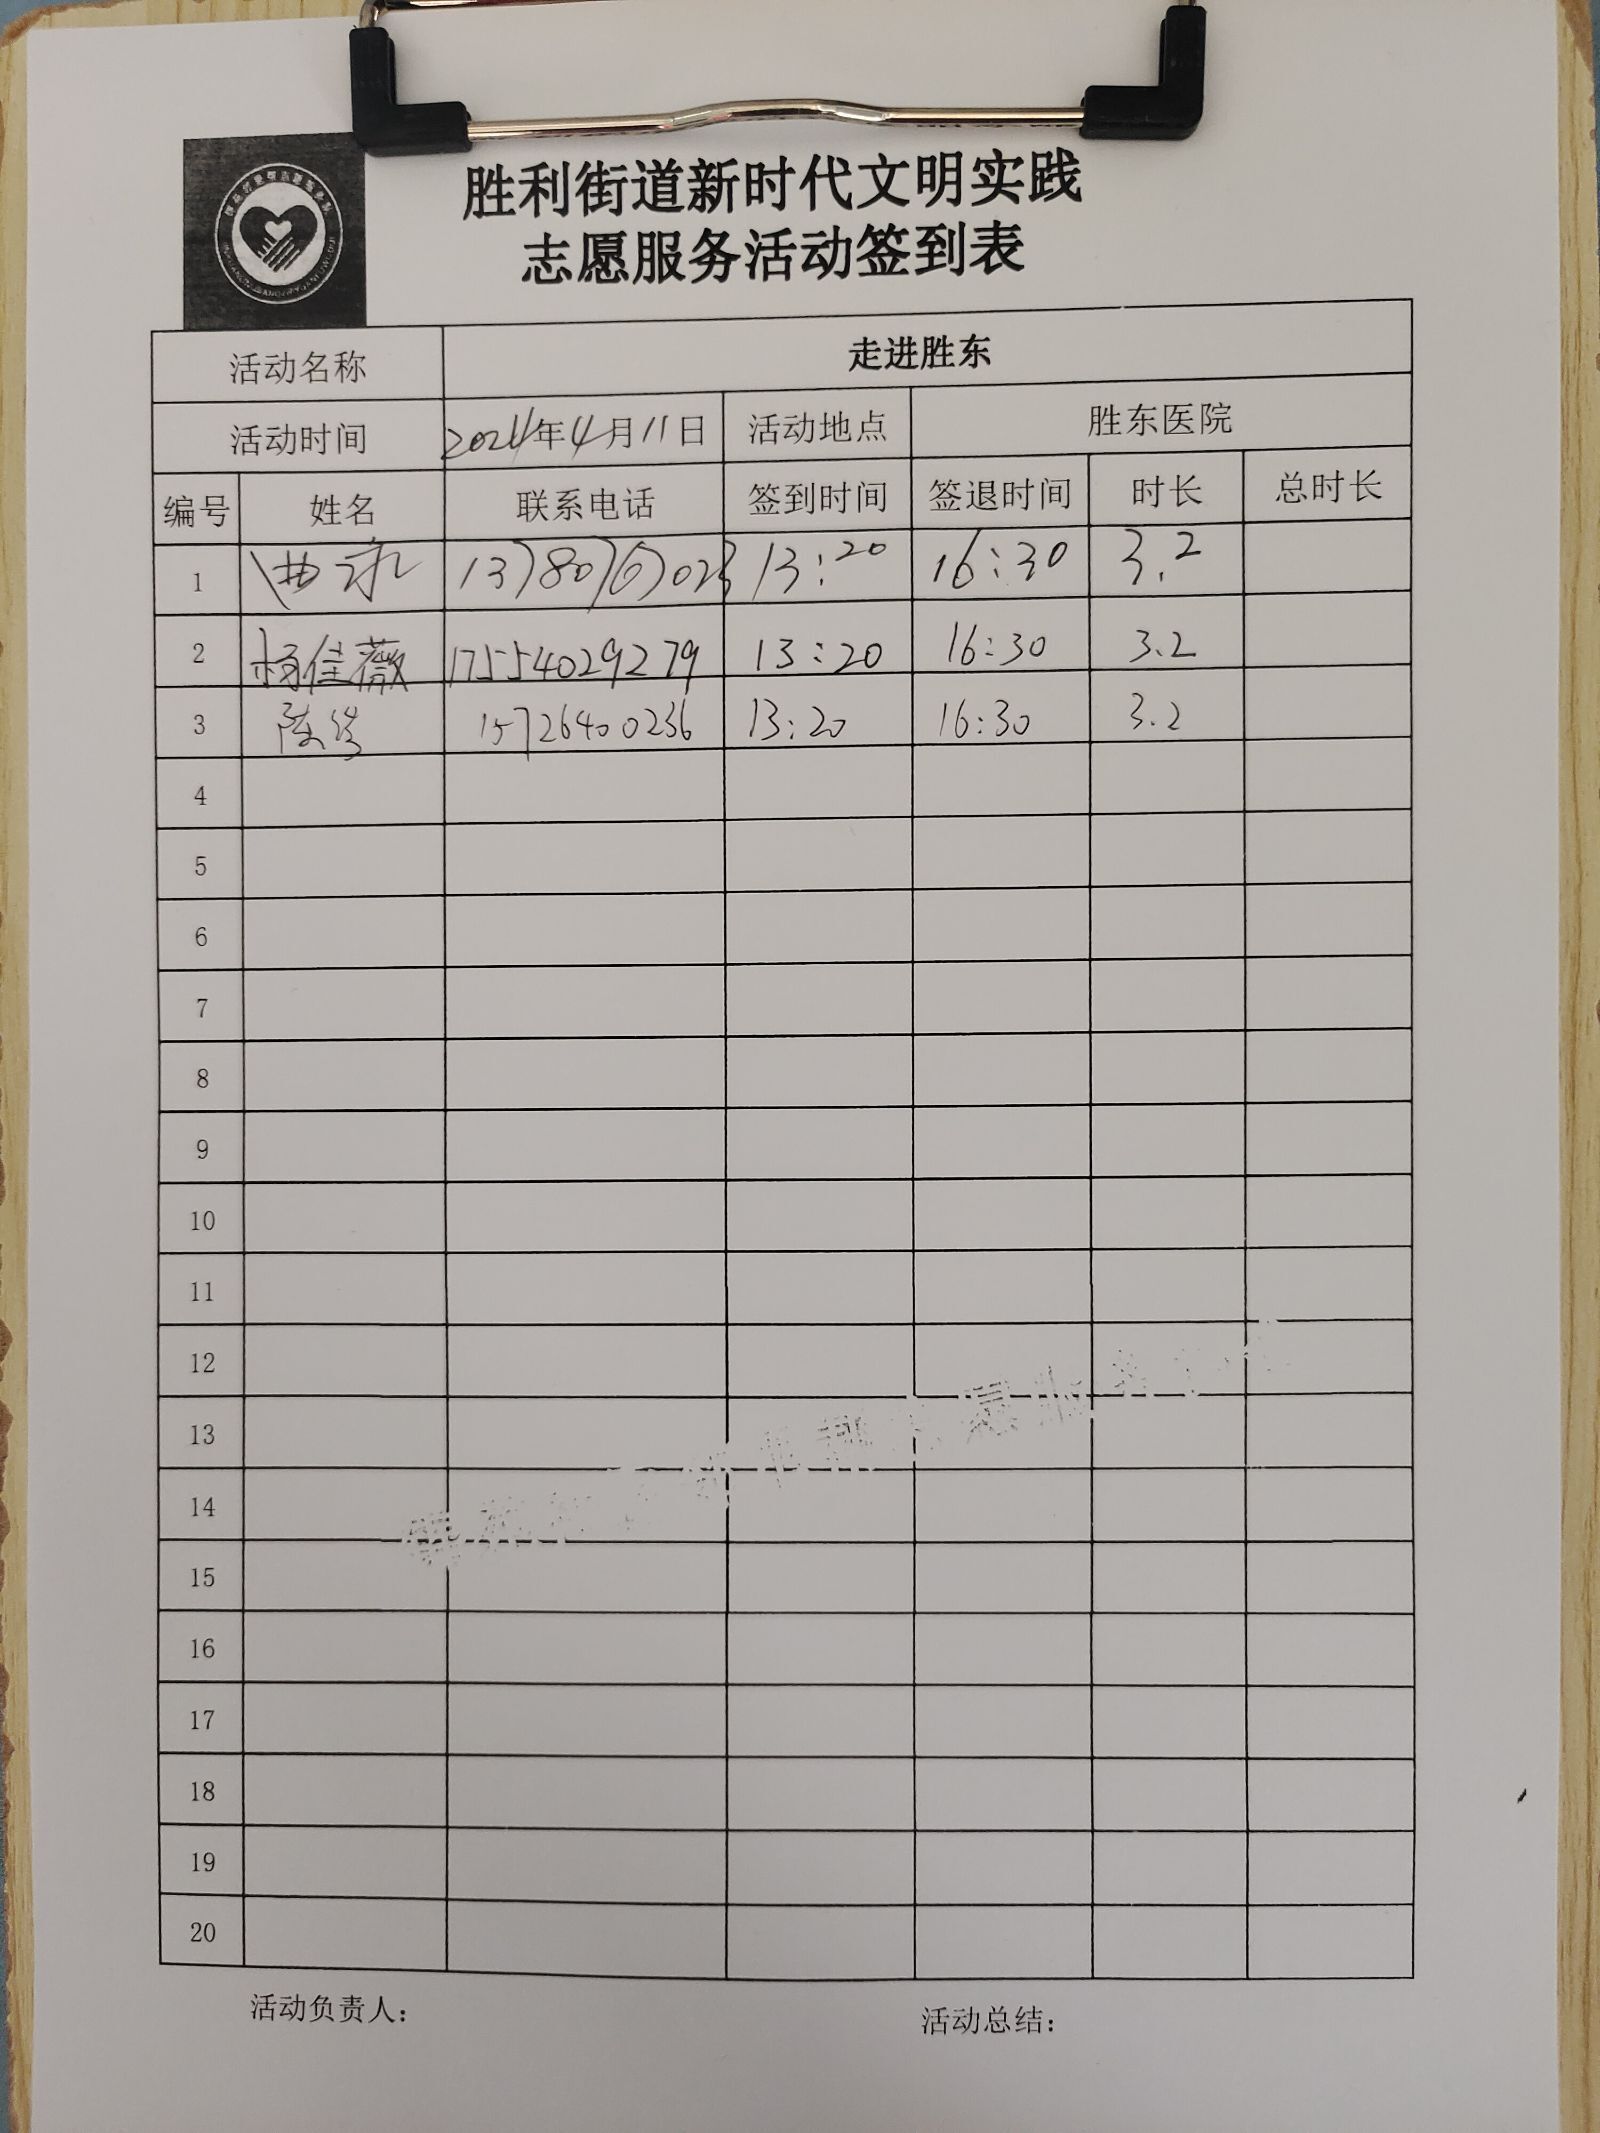 胜利街道新时代文明实践
志愿服务活动签到表
活动名称 走进胜东
活动时间 2024年4月11日 活动地点 胜东医院
编号 姓名 联系电话 签到时间 签退时间 时长 总时长
1 曲永 13780760023 13:20 16:30 3.2
2 杨佳薇 17554029279 13:20 16:30 3.2
3 陈 15726400236 13:20 16:30 3.2
4
5
6
7
8
9
10
11
12
13
14
15
16
17
18
19
20
活动负责人： 活动总结：